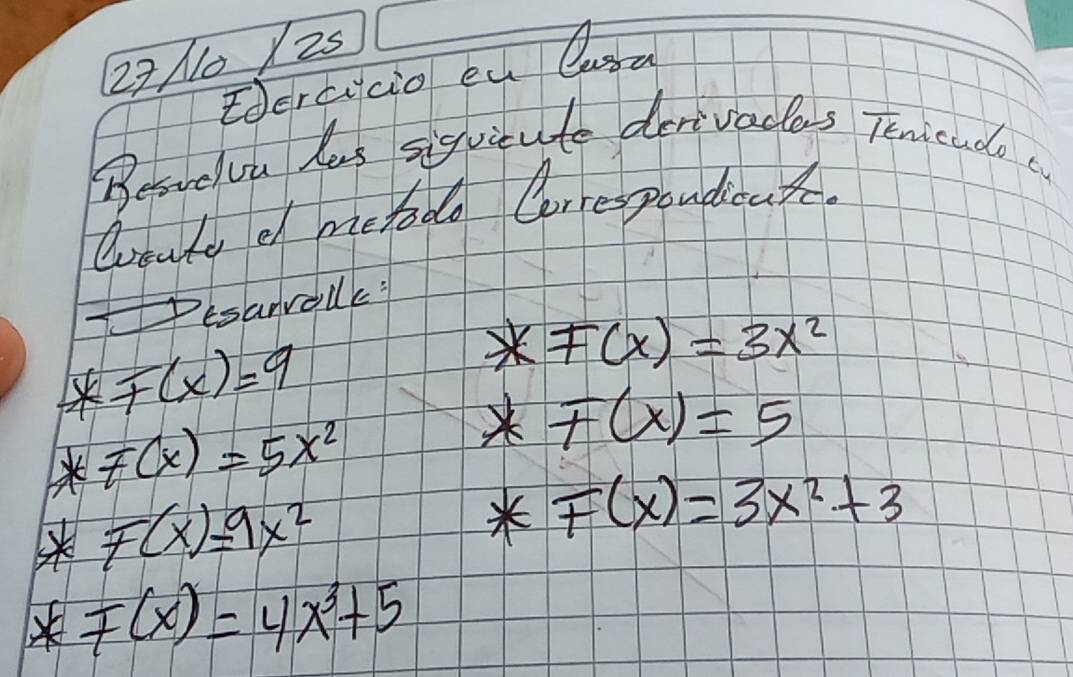 27/10/25
Ejercicio en Casa
Resuelva las siguiente derivadas Teniendo en
Cuenta el metodo Correspondiente.
Desarrolle:
* F(x) = 9
* F(x) = 5x²
* F(x) = 9x²
* F(x) = 4x³+5
* F(x) = 3x²
* F(x) = 5
* F(x) = 3x²+3